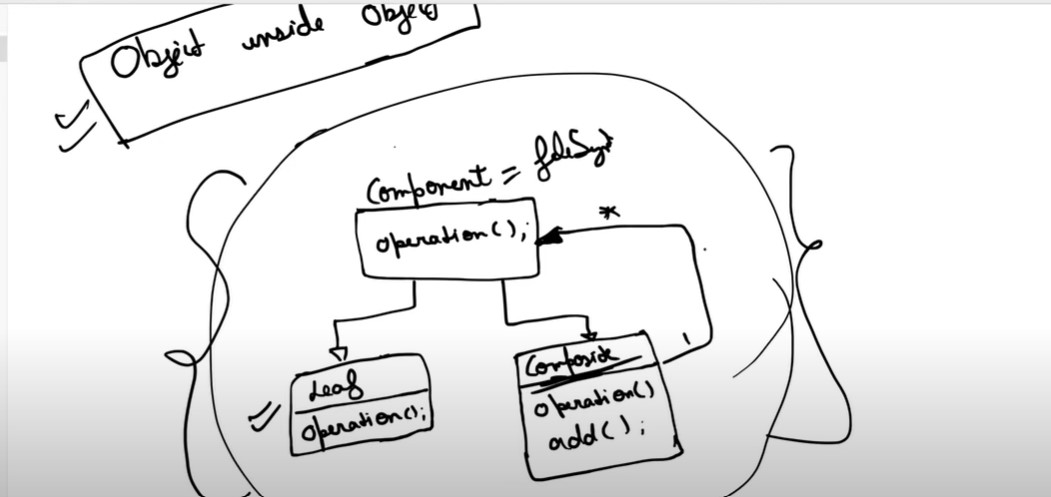 Object inside Object
Component = fileSyst
operation();
*
1
Leaf
operation();
Composite
operation()
add();